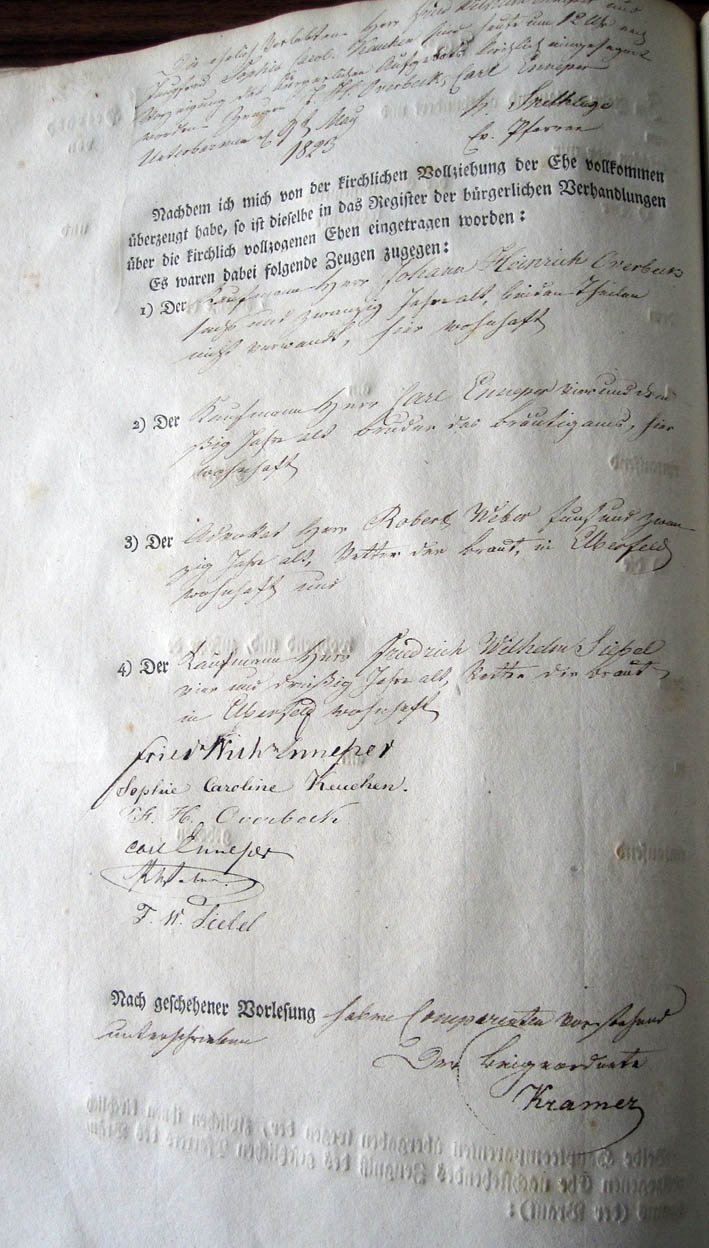 Die ehelich Verlobten Herr Fried Wilhelm Enneper und
Jungfrau Sophie Carol. Keuchen sind heute um 12 Uhr nach
Vorzeigung des bürgerlichen Aufgebots kirchlich eingesegnet
worden. Zeugen J. H. Overbeck, Carl Enneper
Unterbarmen d 9t May
1823
Ev. Pfarrer
Nachdem ich mich von der kirchlichen Vollziehung der Ehe vollkommen
überzeugt habe, so ist dieselbe in das Register der bürgerlichen Verhandlungen
über die kirchlich vollzogenen Ehen eingetragen worden:
Es waren dabei folgende Zeugen zugegen:
1) Der Kaufmann Herr Johann Heinrich Overbeck
sechs und zwanzig Jahre alt, beiden Theilen
nicht verwandt, hier wohnhaft
2) Der Kaufmann Herr Carl Enneper vier und drei
ßig Jahre alt Bruder des Bräutigams, hier
wohnhaft
3) Der Advokat Herr Robert Weber fünf und zwan
zig Jahre alt, Vetter der Braut, in Elberfeld
wohnhaft und
4) Der Kaufmann Herr Friedrich Wilhelm Siebel
vier und dreißig Jahre alt, Vetter der Braut
in Elberfeld wohnhaft
Fried Wilh Enneper
Sophie Caroline Keuchen.
J. H. Overbeck
Carl Enneper
F. W. Siebel
Nach geschehener Vorlesung haben Comparenten vorstehend
unterschrieben
Der Beigeordnete
Kramer